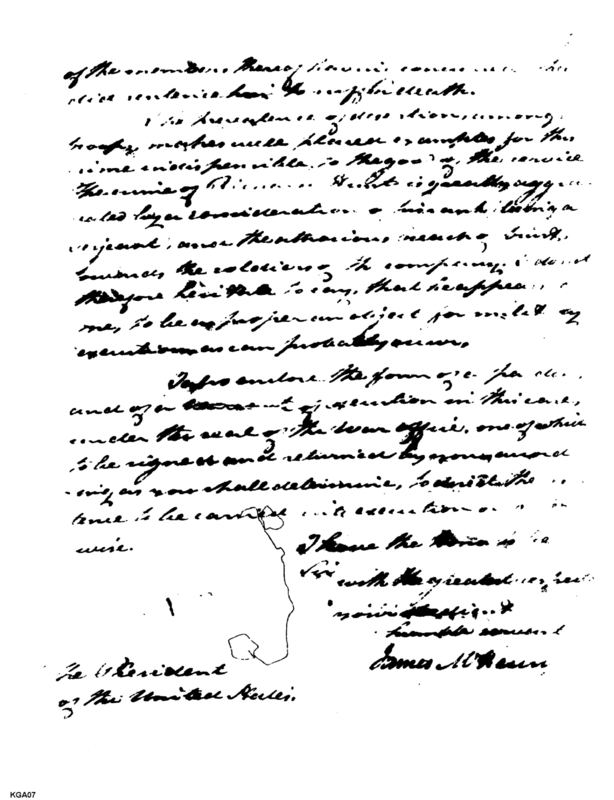 of the members thereof having
said sentence him to suffer death.
The prevalence of desertion among
troops makes well placed examples for this
crime indispensible to the good of the service
The crime of Hunt is greatly aggra
vated by a consideration of his rank being a
and the atrocious breach of trust,
towards the soldiers of the company. I do not
therefore hesitate to say, that he appears
me, to be as proper an object for military
execution as can probably occur.
I also enclose the form of a pardon
and of a warrant of execution in this case,
under the seal of the War office, one of which
to be signed and returned by you accord
ing as you shall determine, the
tence to be carried into execution or
wise.
I have the honor to be
Sir
with the greatest respect
your obedient
humble servant
James McHenry
The President
of the United States.
KGA07